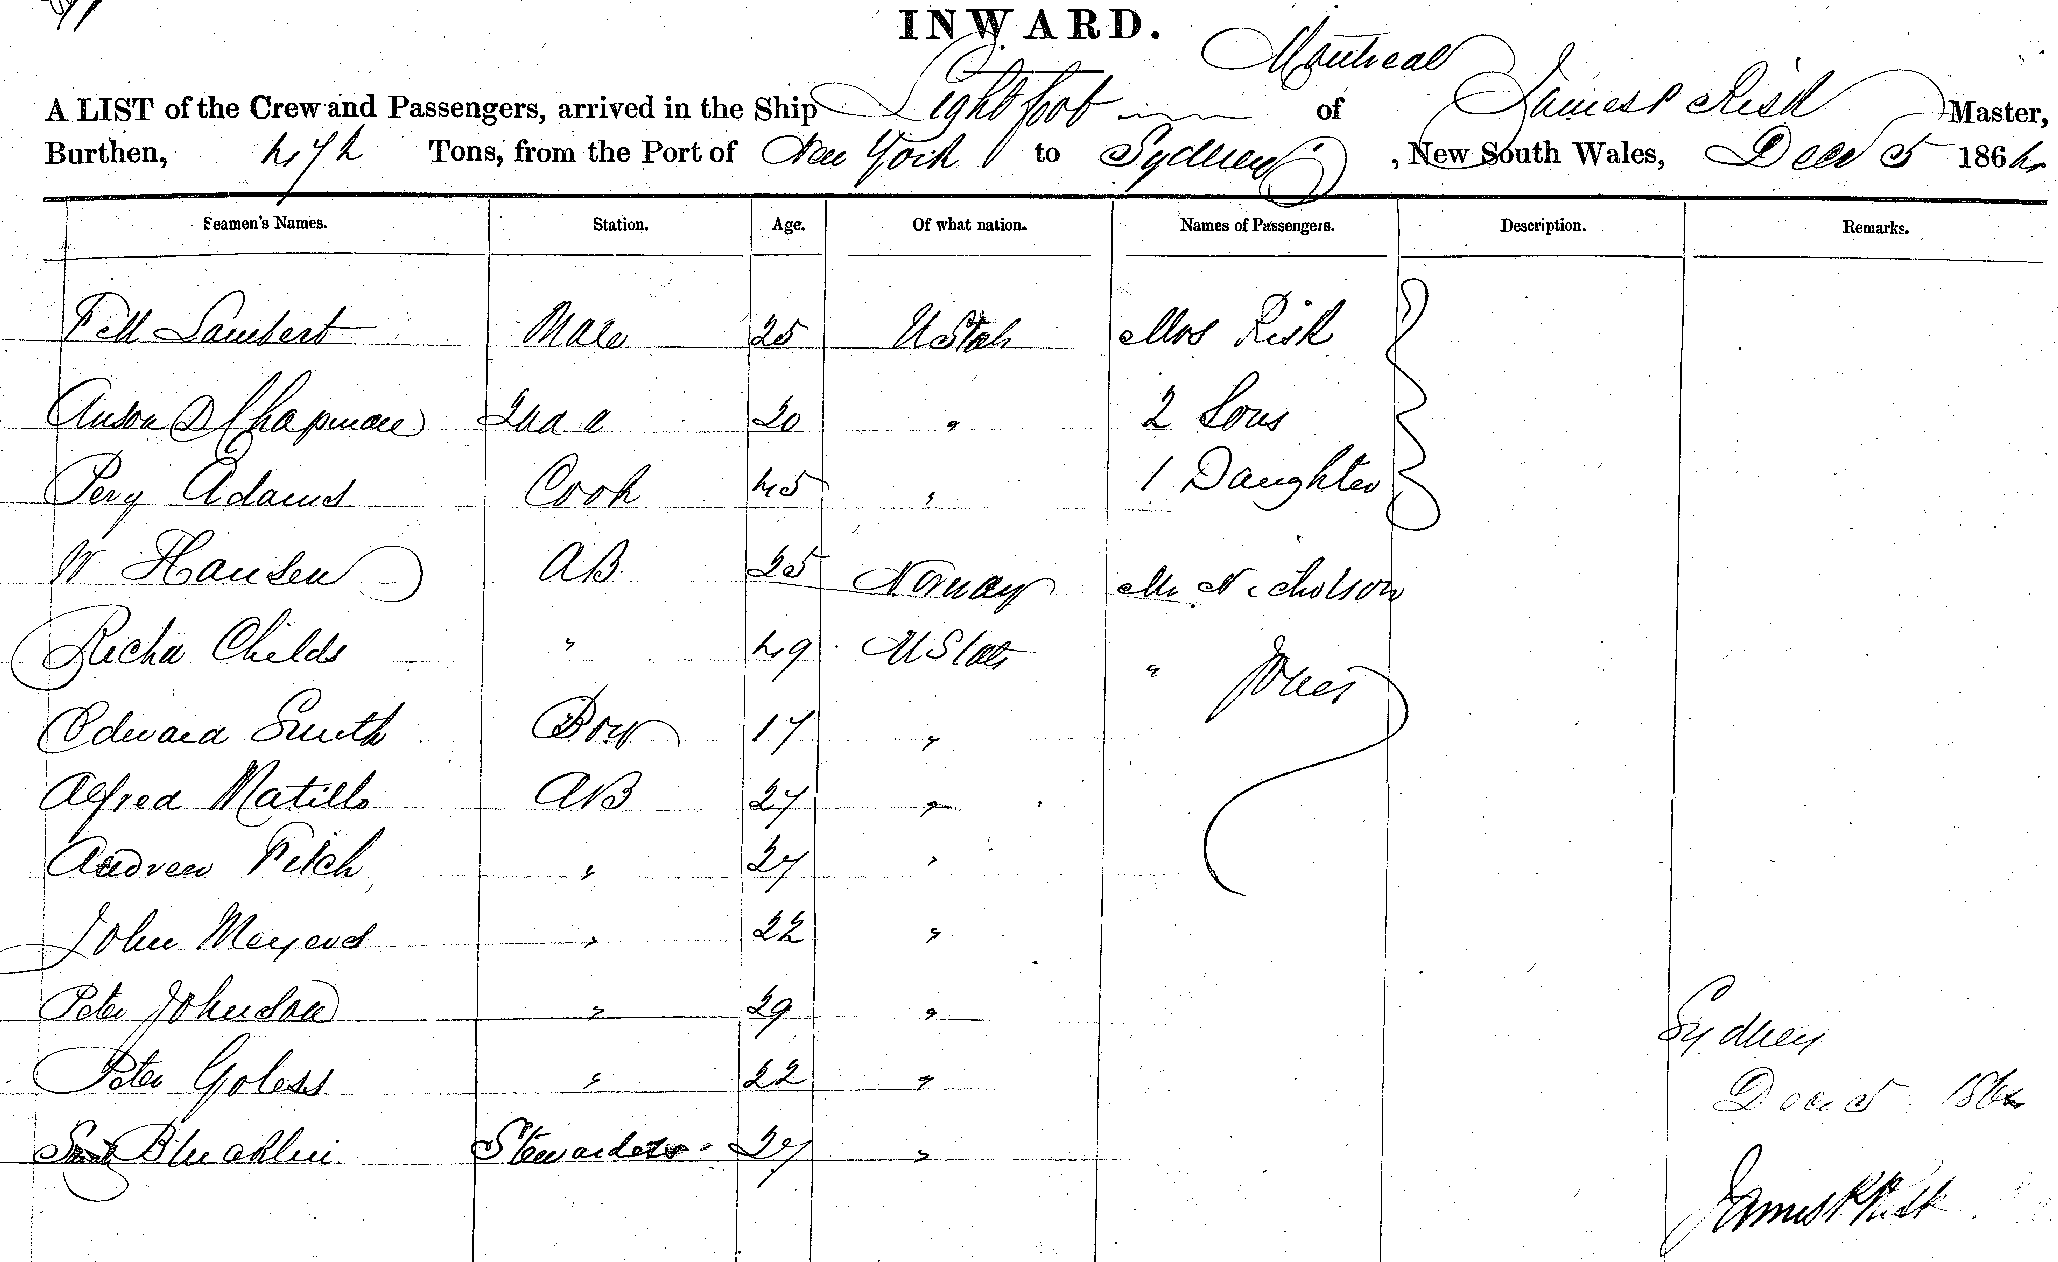 INWARD.
Montreal
A LIST of the Crew and Passengers, arrived in the Ship Lightfoot of James P Risk Master,
Burthen, 474 Tons, from the Port of New York to Sydney, New South Wales, Decr 5 1864
Seamen's Names. Station. Age. Of what nation. Names of Passengers. Description. Remarks.
Lambert Mate 25 U States Mrs Risk
Anson D Chapman 2nd " 20 " 2 Sons
Pery Adams Cook 45 " 1 Daughter
W Hansen AB 25 Norway Mr Nicholson
Richd Childs " 49 U States " Jones
Edward Smith Boy 17 "
Alfred AB 27 "
Andrew Fitch " 27 "
John Meyers " 22 "
Peter Johnson " 29 "
Peter Goless " 22 "
Stewardess 27 "
Sydney
Dec 5 1864
James P Risk